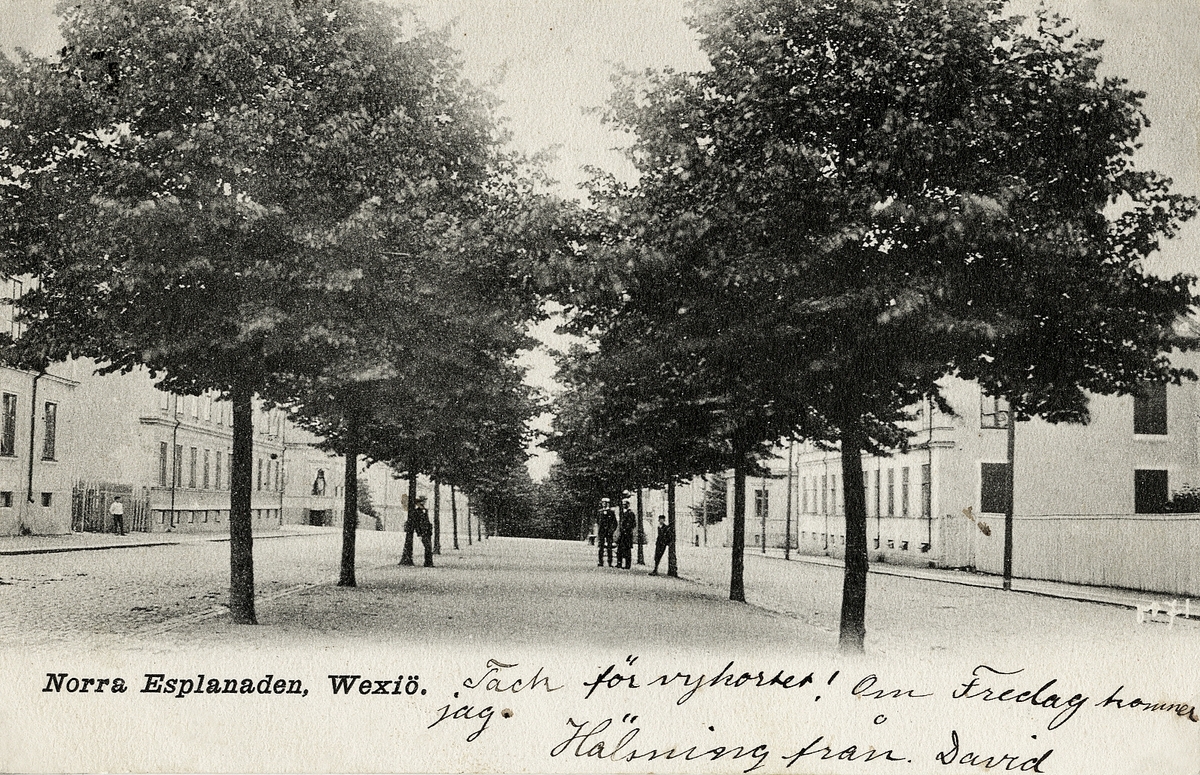 Norra Esplanaden, Wexiö.
Tack för vykortet! Om Fredag kommer
jag.
Hälsning från. David